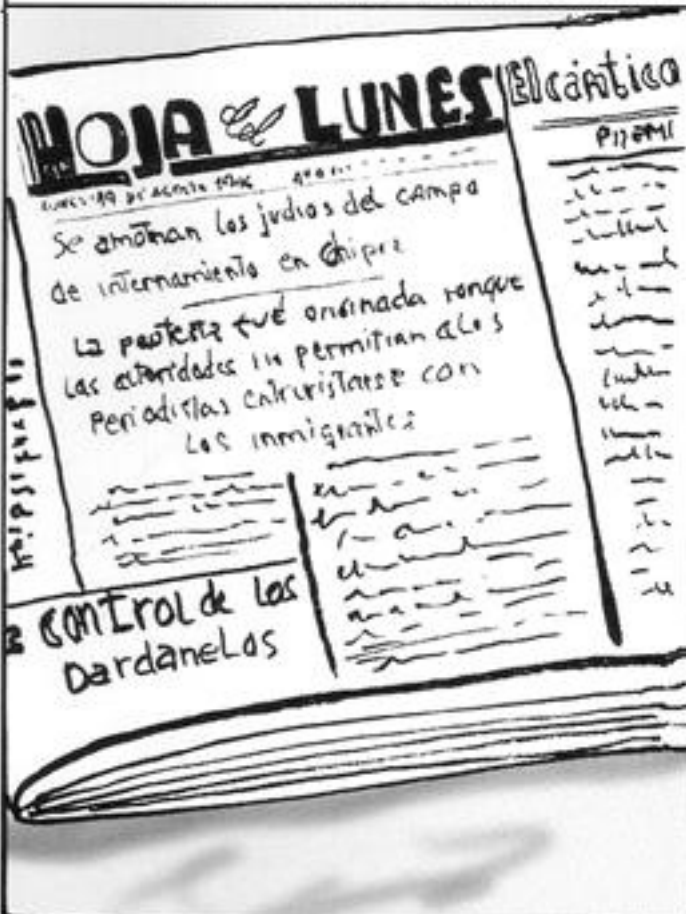 HOJA del LUNES
LUNES 19 DE AGOSTO 1946
Se amotinan los judios del campo
de internamiento en Chipre
La protesta fué originada porque
las autoridades no permitian a los
periodistas entrevistarse con
los inmigrantes
control de los
Dardanelos
El cántico